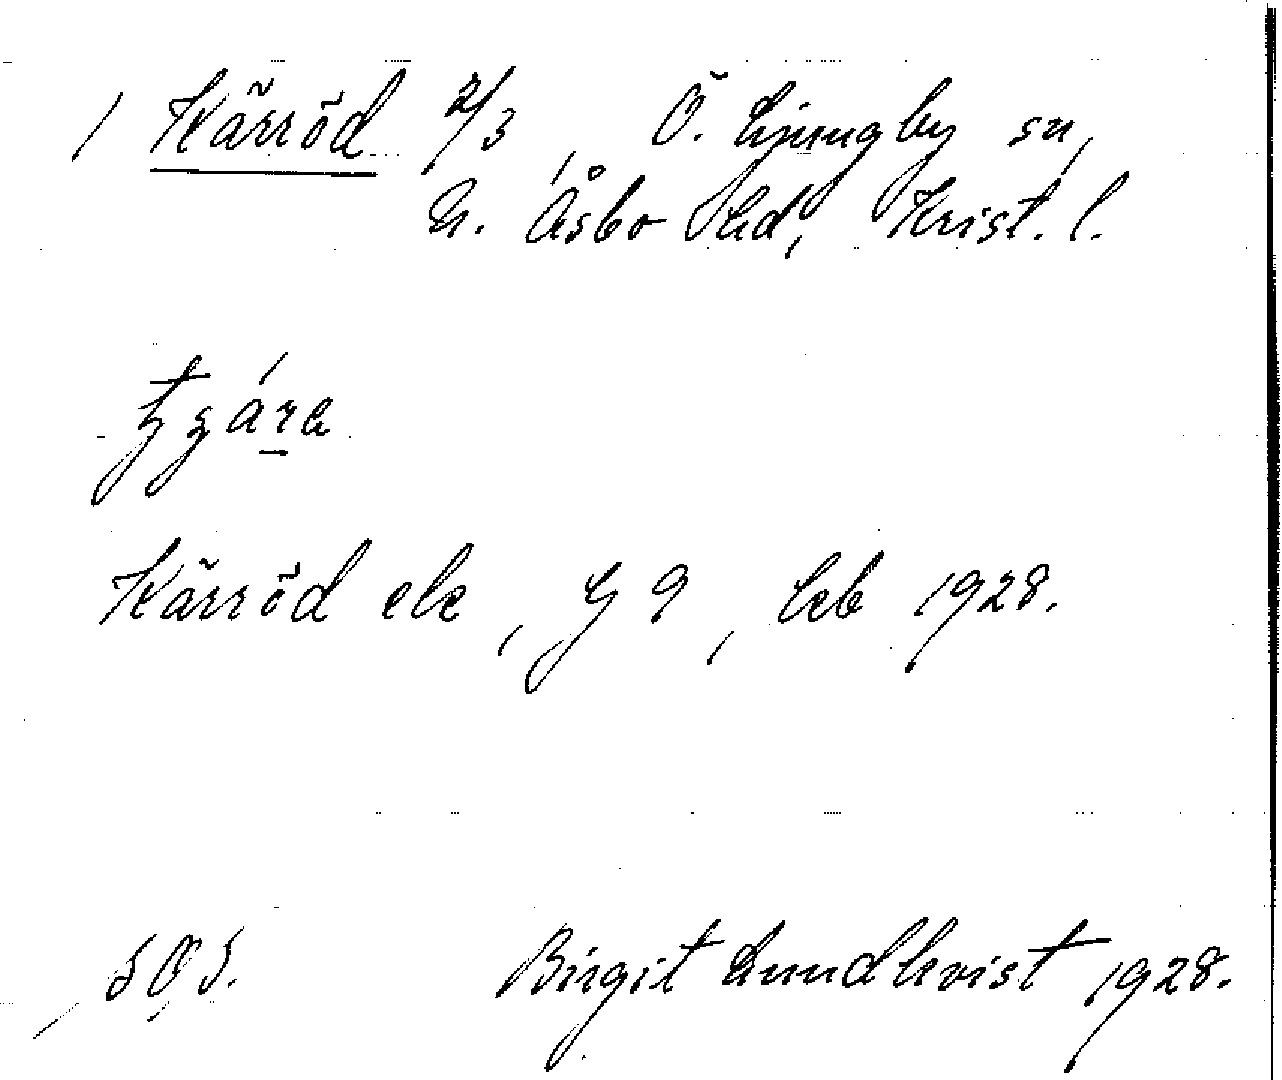 1 Kärröd 2/3, Ö. Ljungby sn,
N. Åsbo hd, Krist. l.
Kärröd ek, G 9, leb 1928.
SOS. Birgit Lundkvist 1928.